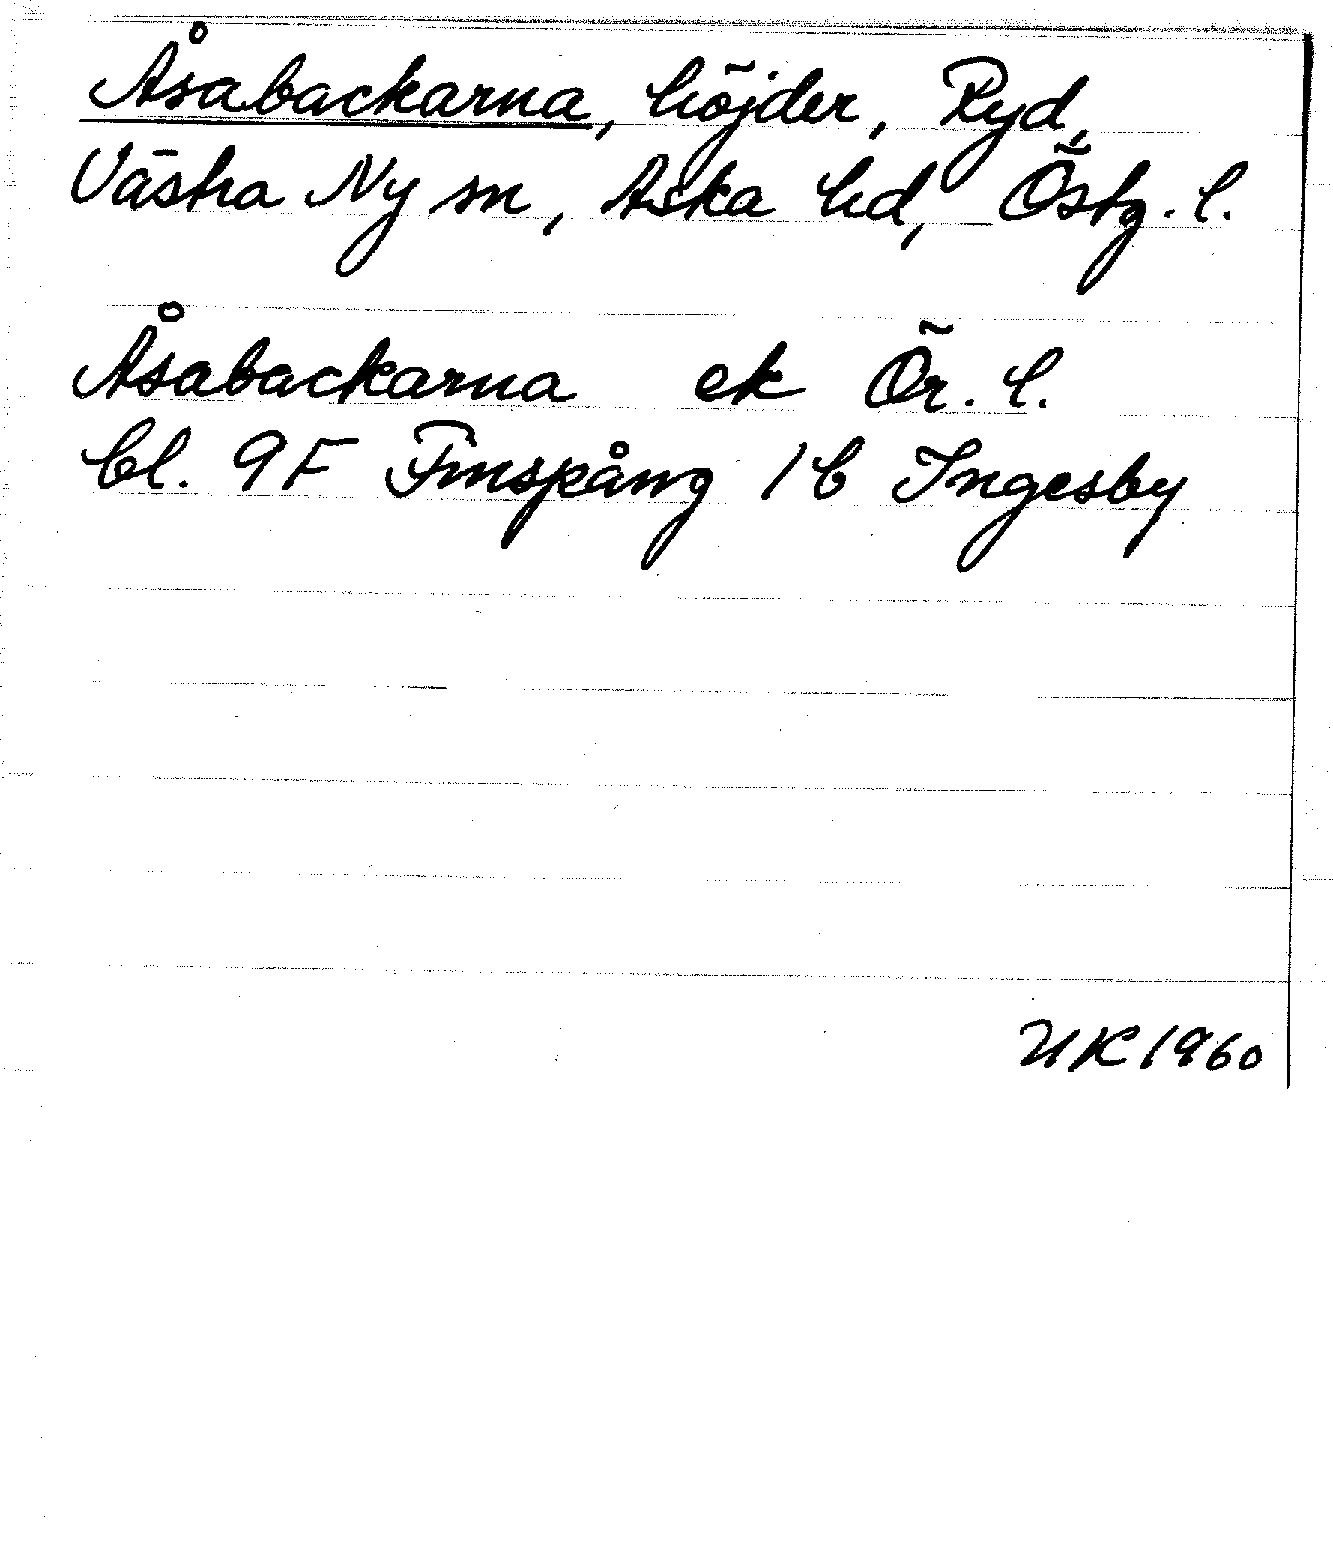 Åsabackarna, höjder, Ryd,
Västra Ny sn, Aska hd, Östg. l.
Åsabackarna ek Ör. l.
bl. 9F Finspång 1b Ingesby
UK 1960